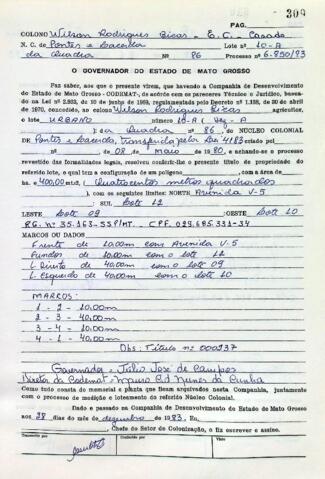 PAG. 309
COLONO Wilson Rodrigues Bisas - E. C. - Casado
N. C. de Pontes e Lacerda Lote nº 10-A
da Quadra Nº 86 Processo nº 6.850/83
O GOVERNADOR DO ESTADO DE MATO GROSSO
Faz saber, aos que o presente virem, que havendo a Companhia de Desenvolvimento
do Estado de Mato Grosso - CODEMAT-, de acordo com os pareceres Técnico e Jurídico, baseado
na Lei nº 2.863, de 20 de junho de 1969, regulamentada pelo Decreto nº 1.138, de 30 de abril
de 1970, concedido, ao colono Wilson Rodrigues Bisas agricultor,
o lote URBANO número 10-A
da Quadra nº 86, DO NÚCLEO COLONIAL
DE Pontes e Lacerda, transferida pela Lei 4183 criado pelo
nº de 08 de Maio de 1980, e achando-se o processo
revestido das formalidades legais, resolveu conferir-lhe o presente título de propriedade do
referido lote, o qual tem a configuração de um polígono com a área de
ha = 400,00 mts², (Quatrocentos metros quadrados
), com os seguintes limites: NORTE Avenida V-5
SUL: Lote 11
LESTE Lote 09 OESTE Lote 10
RG. nº 35.163-SSP/MT. CPF. 029.685.331-34
MARCOS OU DATAS
Frente de 10,00m com Avenida V-5
Fundos de 10,00m com o lote 11
L. Direito de 40,00m com o lote 09
L. Esquerdo de 40,00m com o lote 10
MARCOS:
1 - 2 - 10,00m
2 - 3 - 40,00m
3 - 4 - 10,00m
4 - 1 - 40,00m
Obs: Título nº 000937
Governador - Júlio José de Campos
Diretor da Codemat - Nunes da Cunha
Como tudo consta do memorial e planta que ficam arquivados nesta Companhia, juntamente
com o processo de medição e loteamento do referido Núcleo Colonial.
Dado e passado na Companhia de Desenvolvimento do Estado de Mato Grosso
aos 28 dias do mês de dezembro de 1983. Eu,
, Chefe do Setor de Colonização, o fiz escrever e assino.
Documento por Conferido por Visto